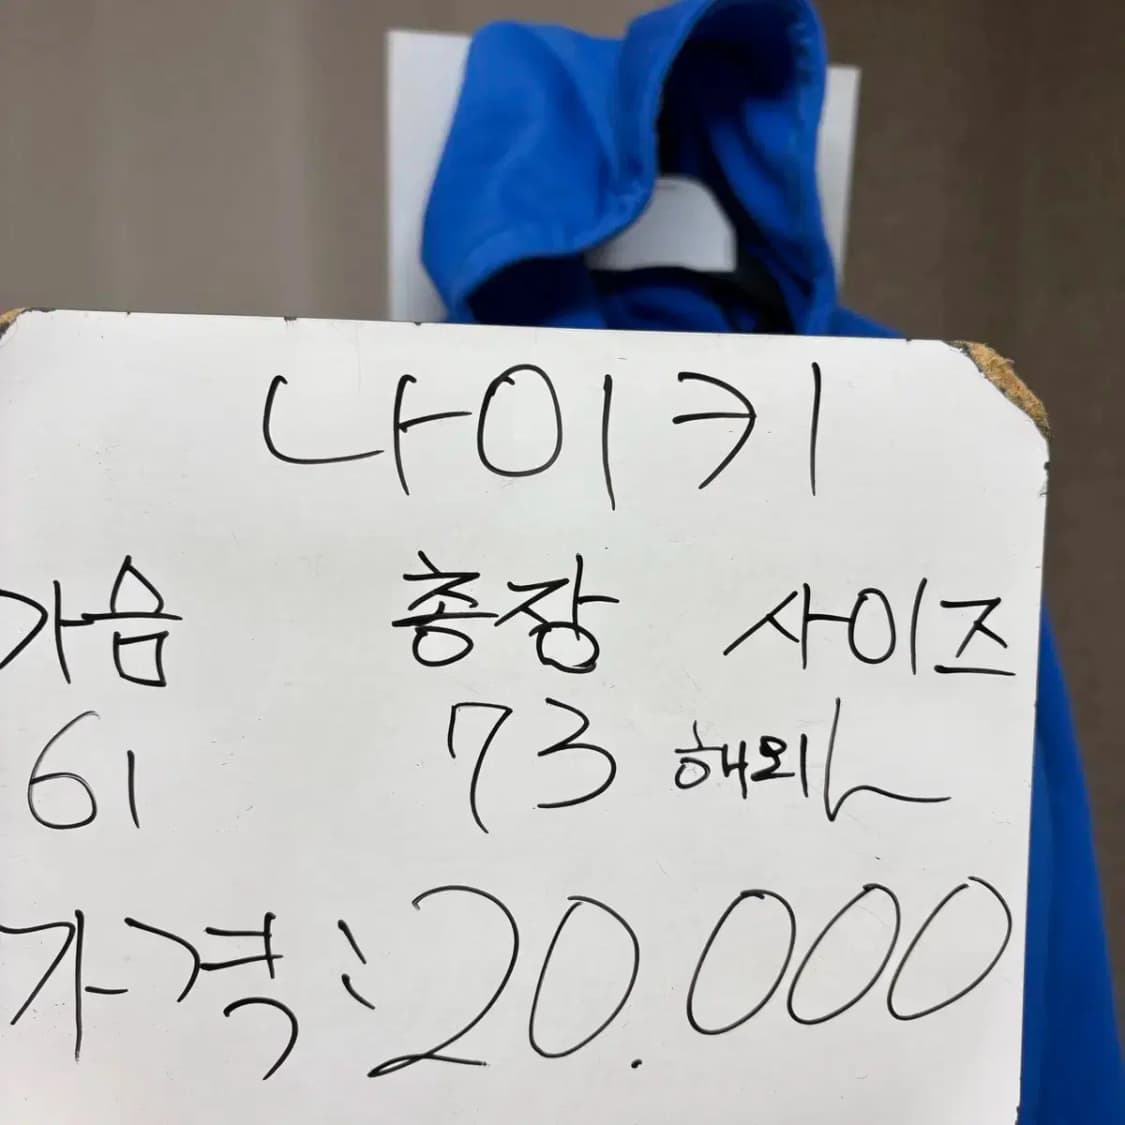 나이키
가슴 총장 사이즈
61 73 해외L
가격: 20.000